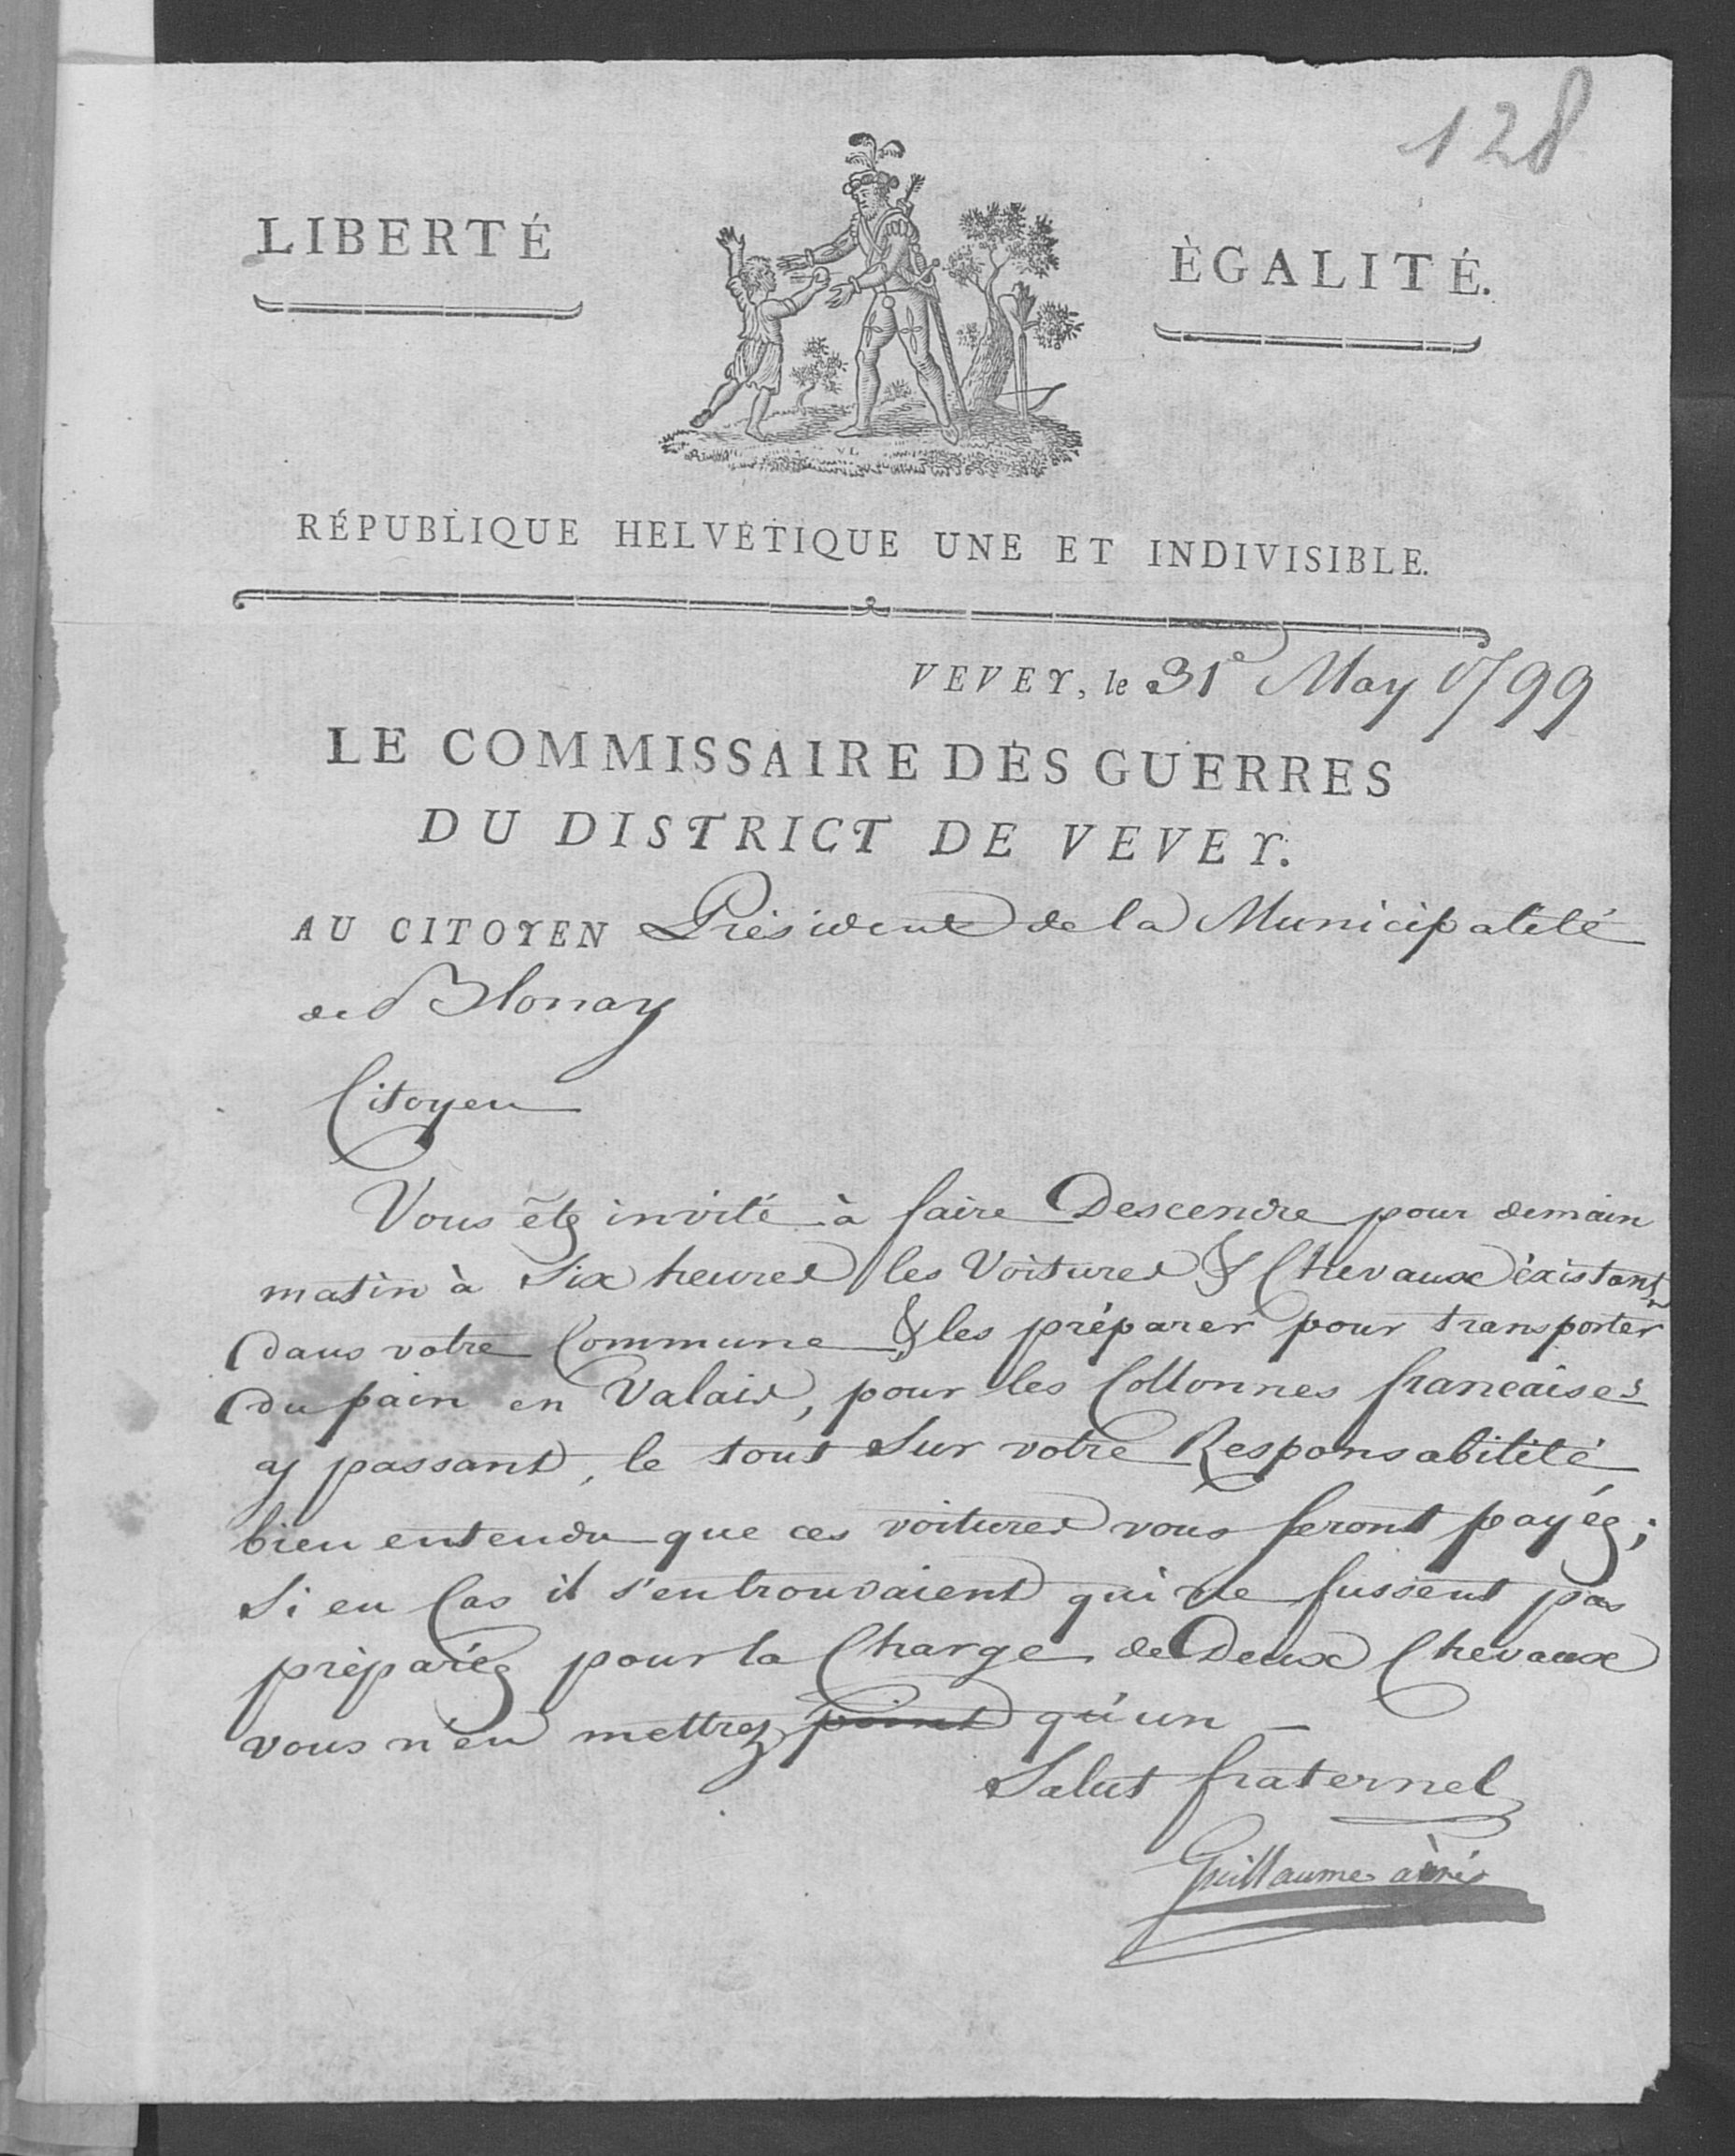 128
LIBERTÉ
ÈGALITÉ.
VL
RÉPUBLIQUE HELVÉTIQUE UNE ET INDIVISIBLE.
VEVEY, le 31e May 1799
LE COMMISSAIRE DES GUERRES
DU DISTRICT DE VEVEY.
AU CITOYEN Président de la Municipalité
de Blonay
Citoyen
Vous êtes invité à faire Descendre pour demain
matin à Six heures les Voitures & Chevaux éxistants
dans votre Commune & les préparer pour transporter
du pain en Valais, pour les Collonnes francaises
y passant, le tout Sur votre Responsabilité
bien entendu que ces voitures vous seront payées;
Si en Cas il s'entrouvaient qui ne fussent pas
préparées pour la Charge de Deux Chevaux
vous n'en mettrez point qu'un
Salut fraternel
Guillaume ainé